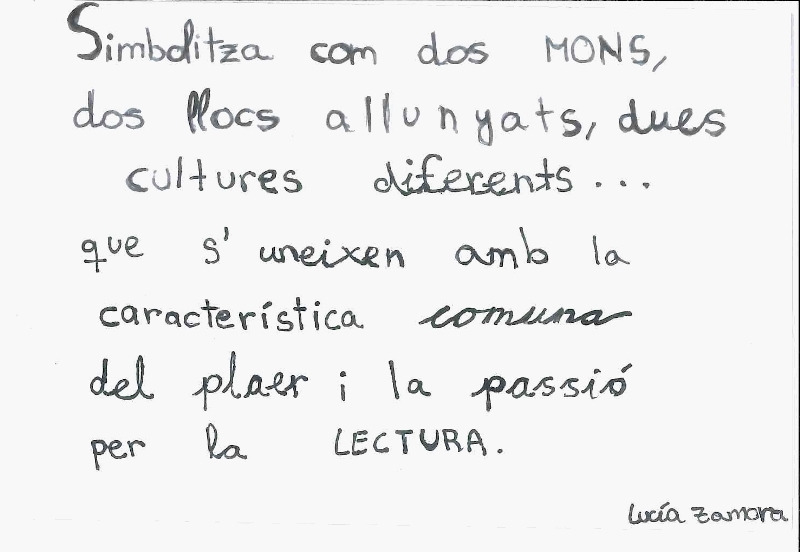 Simbolitza com dos MONS,
dos llocs allunyats, dues
cultures diferents...
que s'uneixen amb la
característica comuna
del plaer i la passió
per la LECTURA.
Lucía Zamora